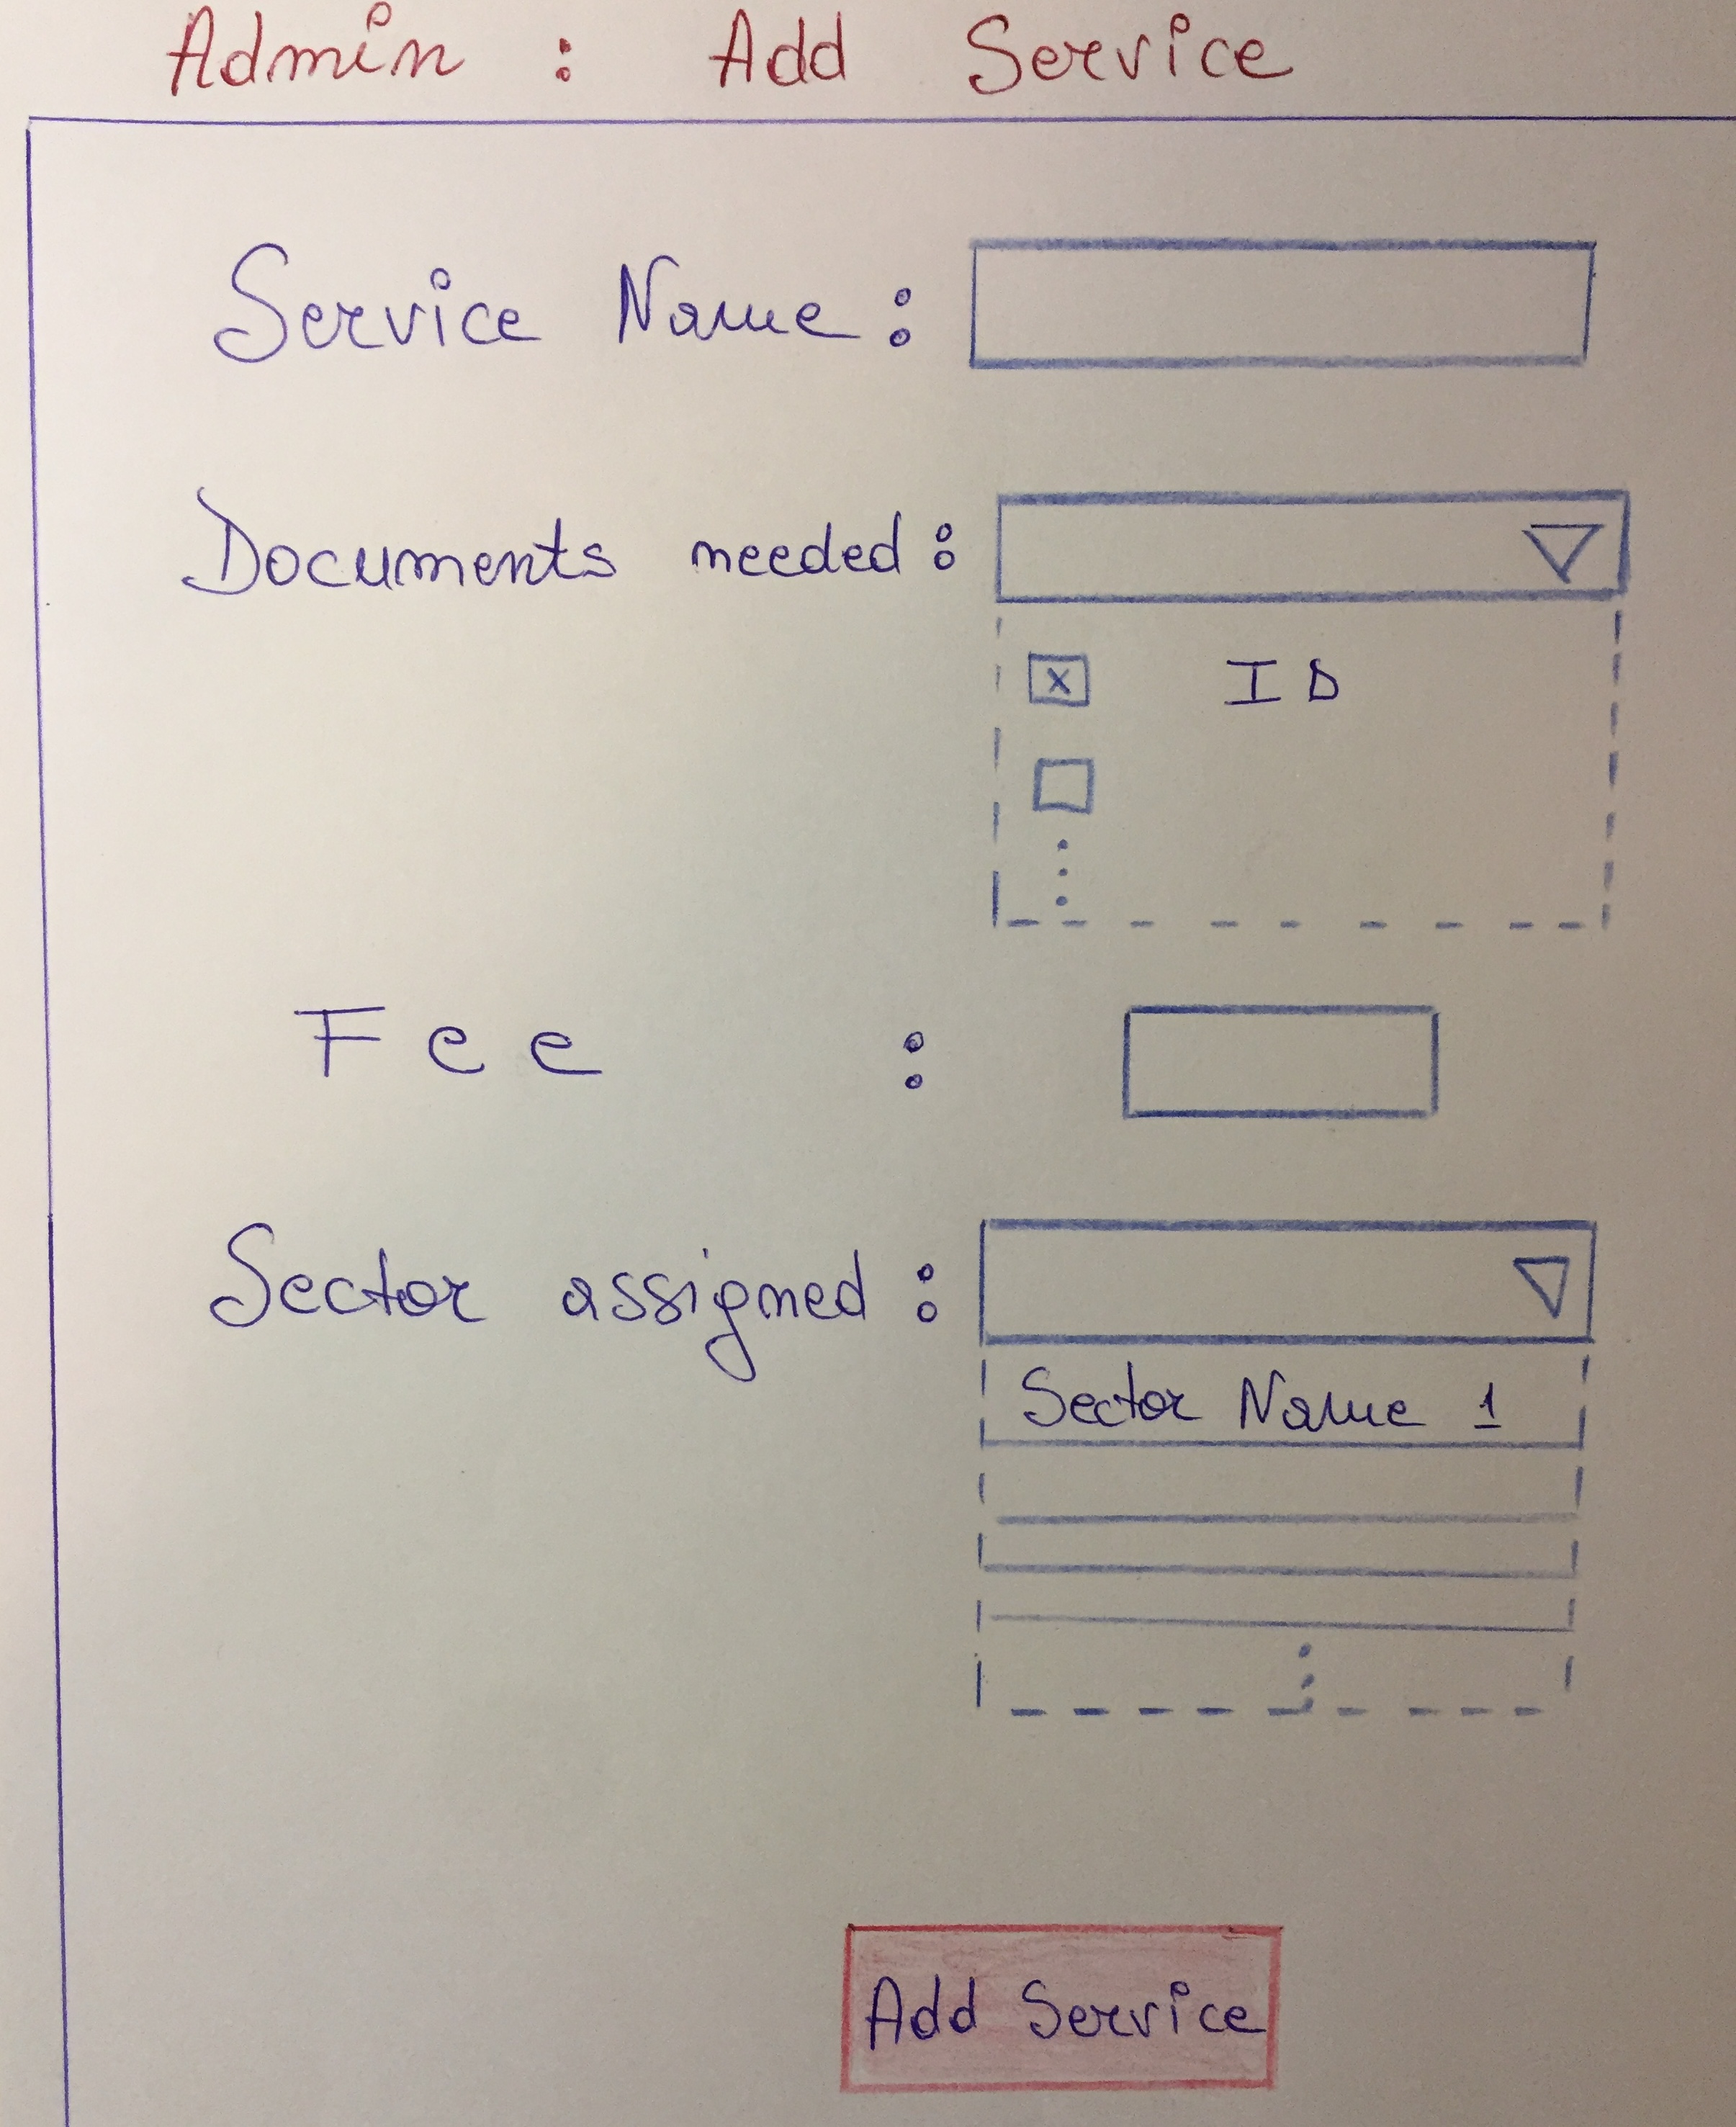 Admin : Add Service
Service Name :
Documents needed :
x ID
Fee :
Sector assigned :
Sector Name 1
Add Service